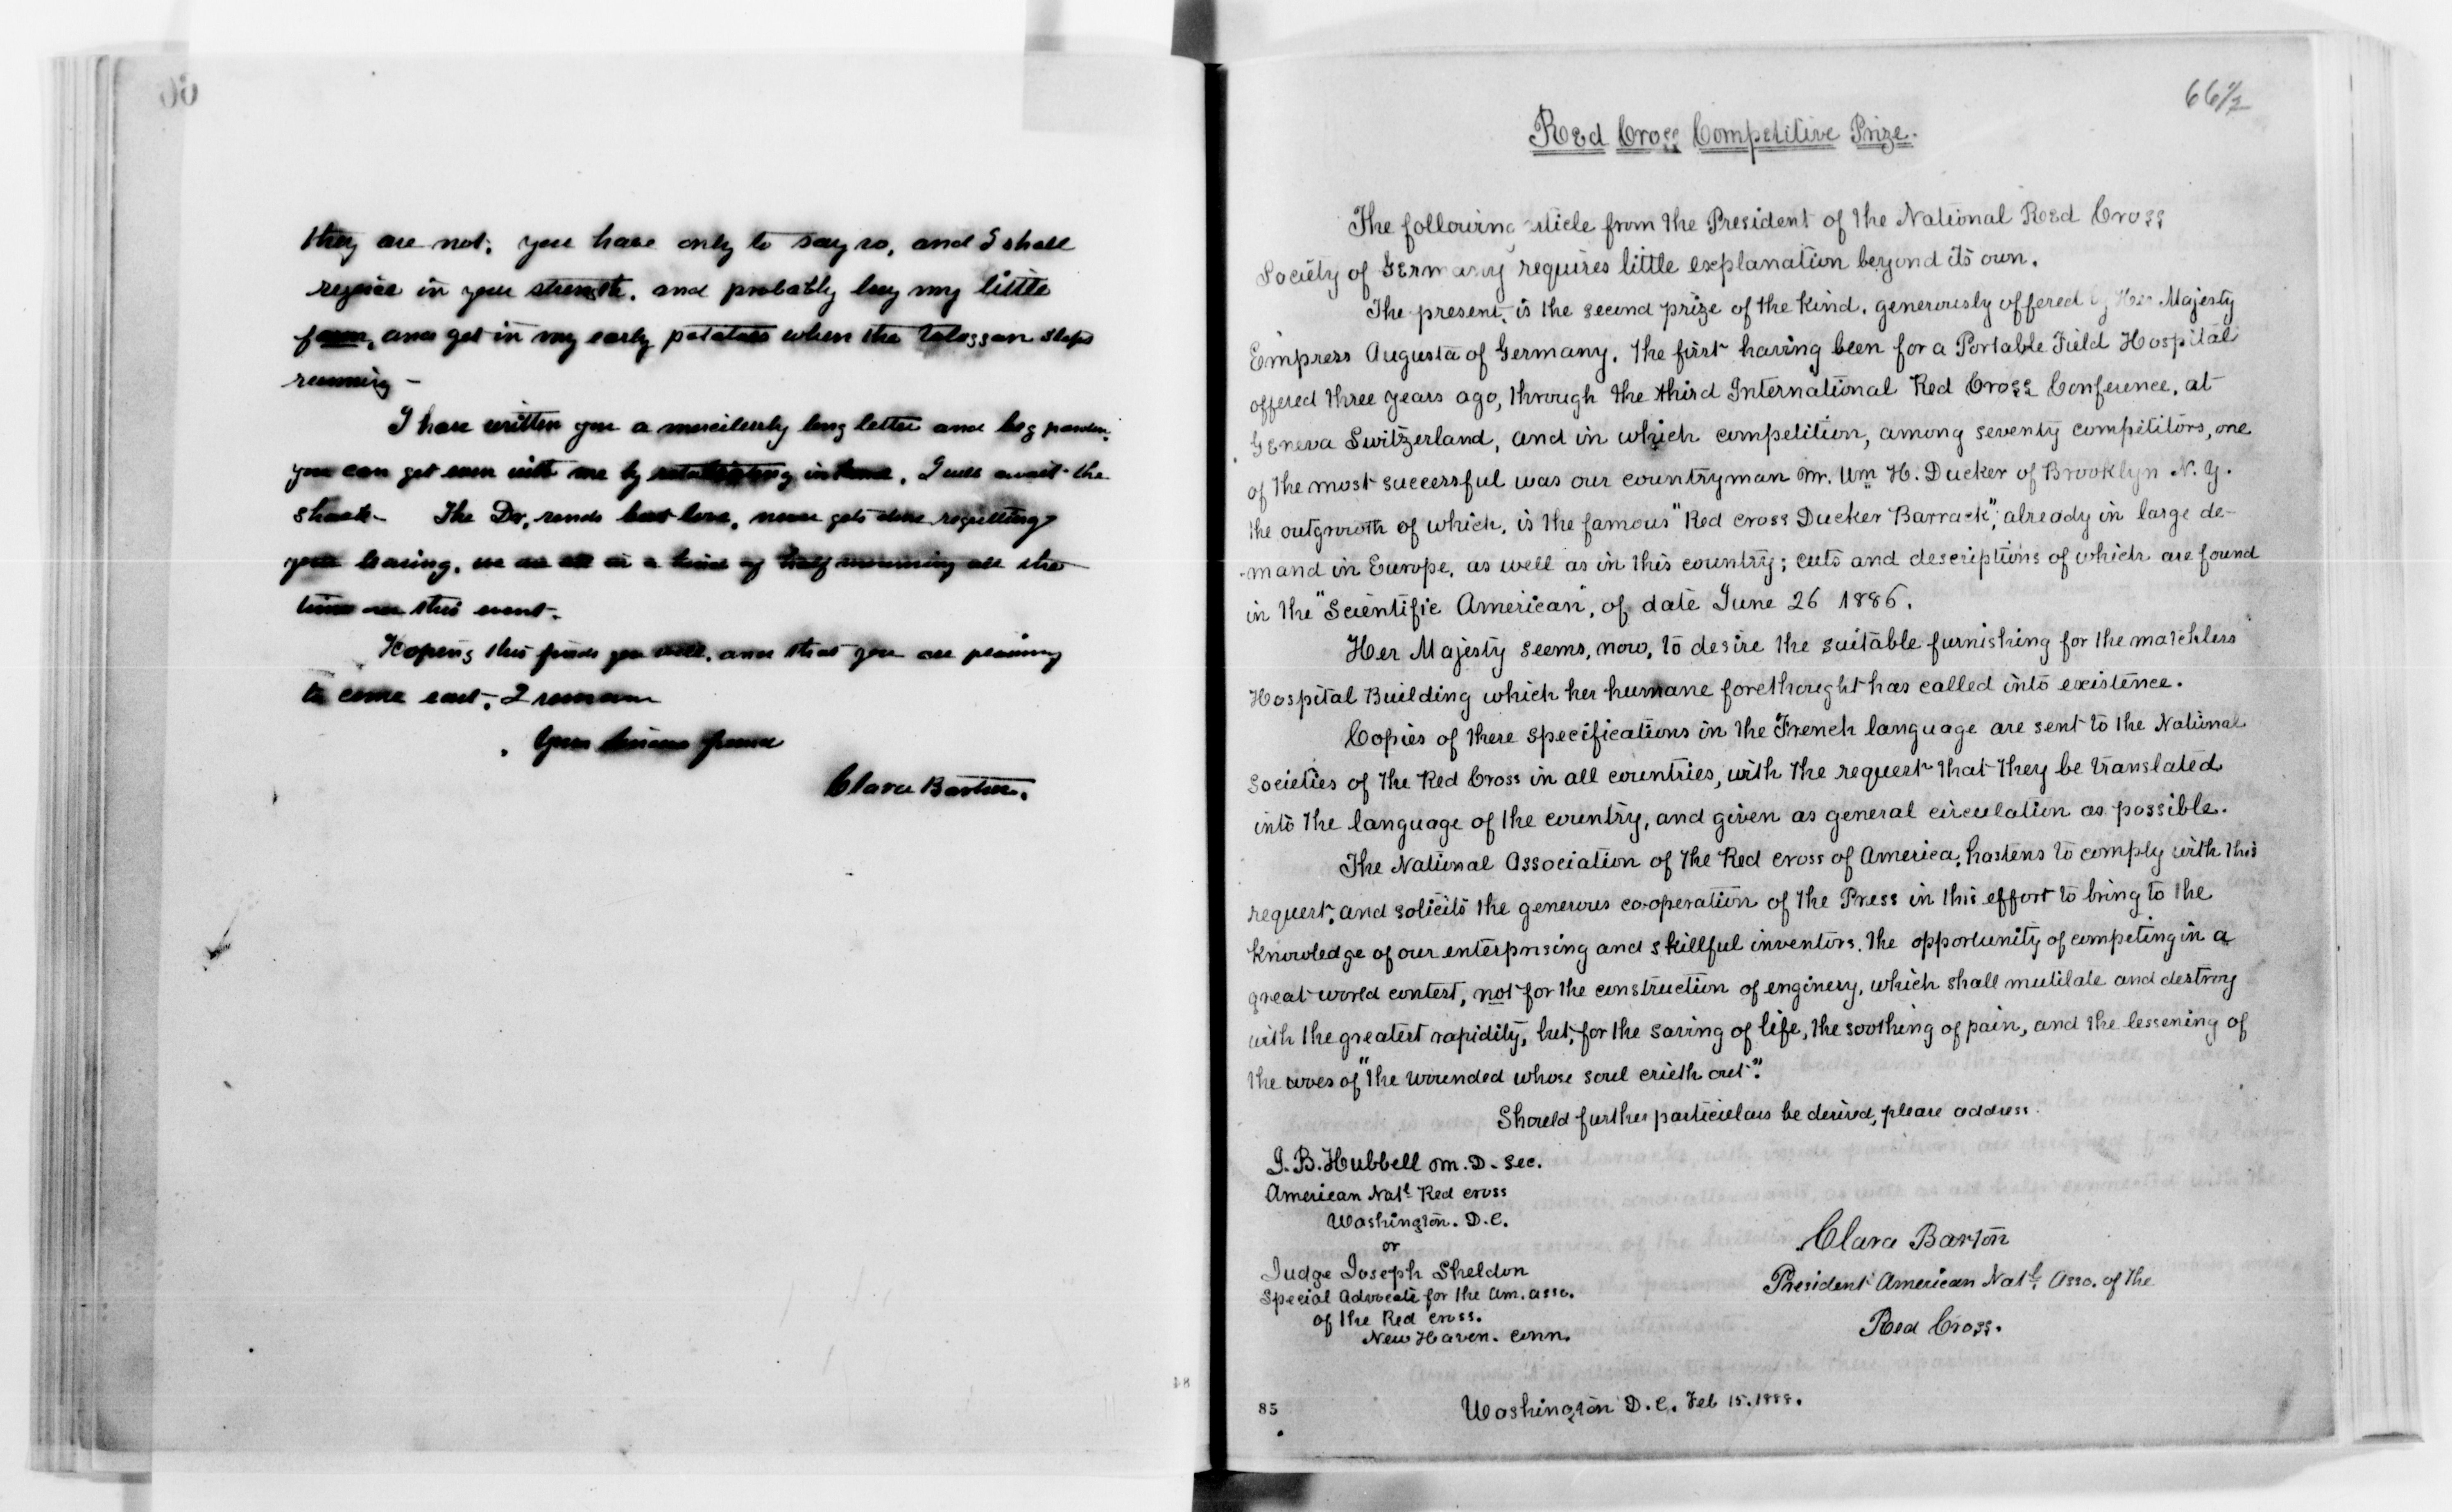 they are not; you have only to say so, and I shall
rejoice in your strength, and probably buy my little
farm, and get in my early potatoes when the toboggan stops
running —
I have written you a mercilessly long letter and beg pardon.
you can get even with me by retaliating in kind. I will await the
shock — The Dr, sends best love, never gets done regretting
your leaving, we are all in a kind of half mourning all the
time over this event.
Hoping this finds you well, and that you are planning
to come east, I remain
Your sincere friend
Clara Barton.
66½
Red Cross Competitive Prize.
The following article from the President of the National Red Cross
Society of Germany requires little explanation beyond its own.
The present, is the second prize of the kind, generously offered by Her Majesty
Empress Augusta of Germany. The first having been for a Portable Field Hospital
offered three years ago, through the third International Red Cross Conference, at
Geneva Switzerland, and in which competition, among seventy competitors, one
of the most successful was our countryman Mr. Wm H. Ducker of Brooklyn N. Y.
the outgrowth of which, is the famous "Red Cross Ducker Barrack", already in large de-
-mand in Europe, as well as in this country; cuts and descriptions of which are found
in the "Scientific American", of date June 26 1886.
Her Majesty seems, now, to desire the suitable furnishing for the matchless
Hospital Building which her humane forethought has called into existence.
Copies of these specifications in the French language are sent to the National
Societies of the Red Cross in all countries, with the request that they be translated
into the language of the country, and given as general circulation as possible.
The National Association of the Red Cross of America, hastens to comply with this
request, and solicits the generous co-operation of the Press in this effort to bring to the
knowledge of our enterprising and skillful inventors. The opportunity of competing in a
great world contest, not for the construction of enginery, which shall mutilate and destroy
with the greatest rapidity, but, for the saving of life, the soothing of pain, and the lessening of
the woes of "the wounded whose soul crieth out".
Should further particulars be desired, please address.
J. B. Hubbell M. D. Sec.
American Natl Red Cross
Washington. D.C.
or
Judge Joseph Sheldon
Special Advocate for the Am. Asso.
of the Red Cross.
New Haven. Conn.
Clara Barton
President American Natl. Asso. of the
Red Cross.
85
Washington D.C. Feb 15. 1888.